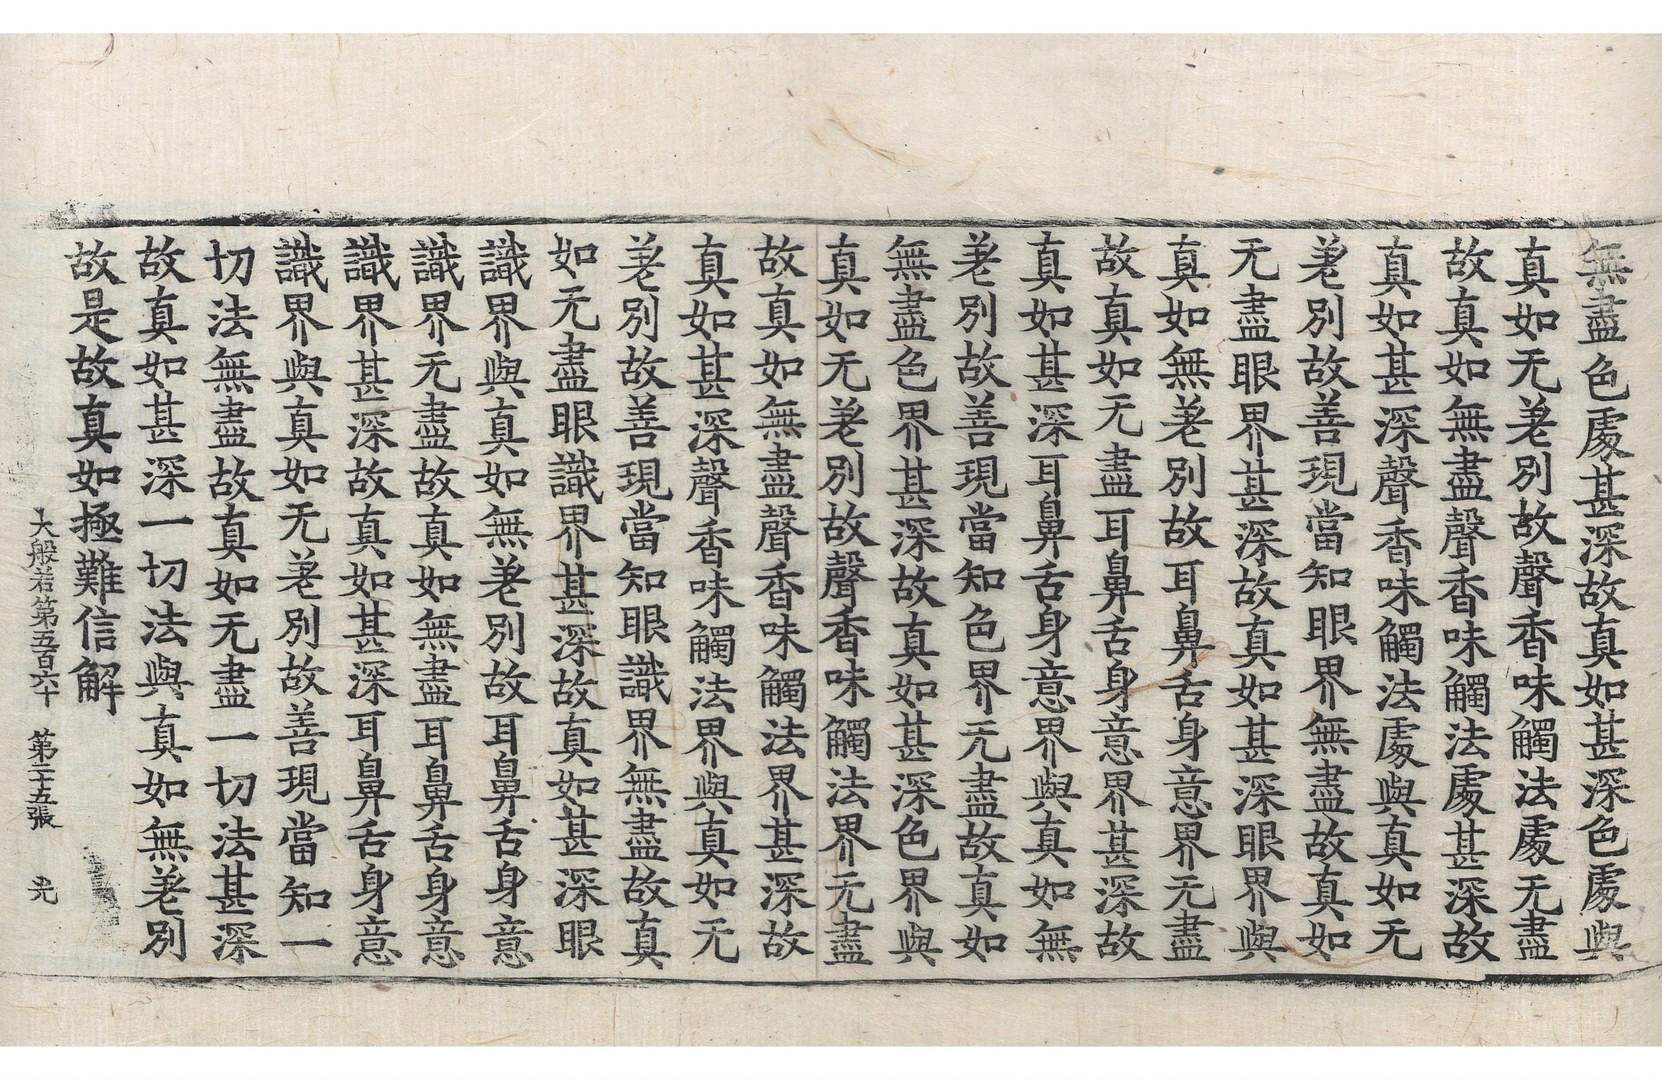 無盡色處甚深故真如甚深色處與
真如无差別故聲香味觸法處无盡
故真如無盡聲香味觸法處甚深故
真如甚深聲香味觸法處與真如无
差別故善現當知眼界無盡故真如
无盡眼界甚深故真如甚深眼界與
真如無差別故耳鼻舌身意界无盡
故真如无盡耳鼻舌身意界甚深故
真如甚深耳鼻舌身意界與真如無
差別故善現當知色界无盡故真如
無盡色界甚深故真如甚深色界與
真如无差別故聲香味觸法界无盡
故真如無盡聲香味觸法界甚深故
真如甚深聲香味觸法界與真如无
差別故善現當知眼識界無盡故真
如无盡眼識界甚深故真如甚深眼
識界與真如無差別故耳鼻舌身意
識界无盡故真如無盡耳鼻舌身意
識界甚深故真如甚深耳鼻舌身意
識界與真如无差別故善現當知一
切法無盡故真如无盡一切法甚深
故真如甚深一切法與真如無差別
故是故真如極難信解
大般若第五百六十 第二十五張 光